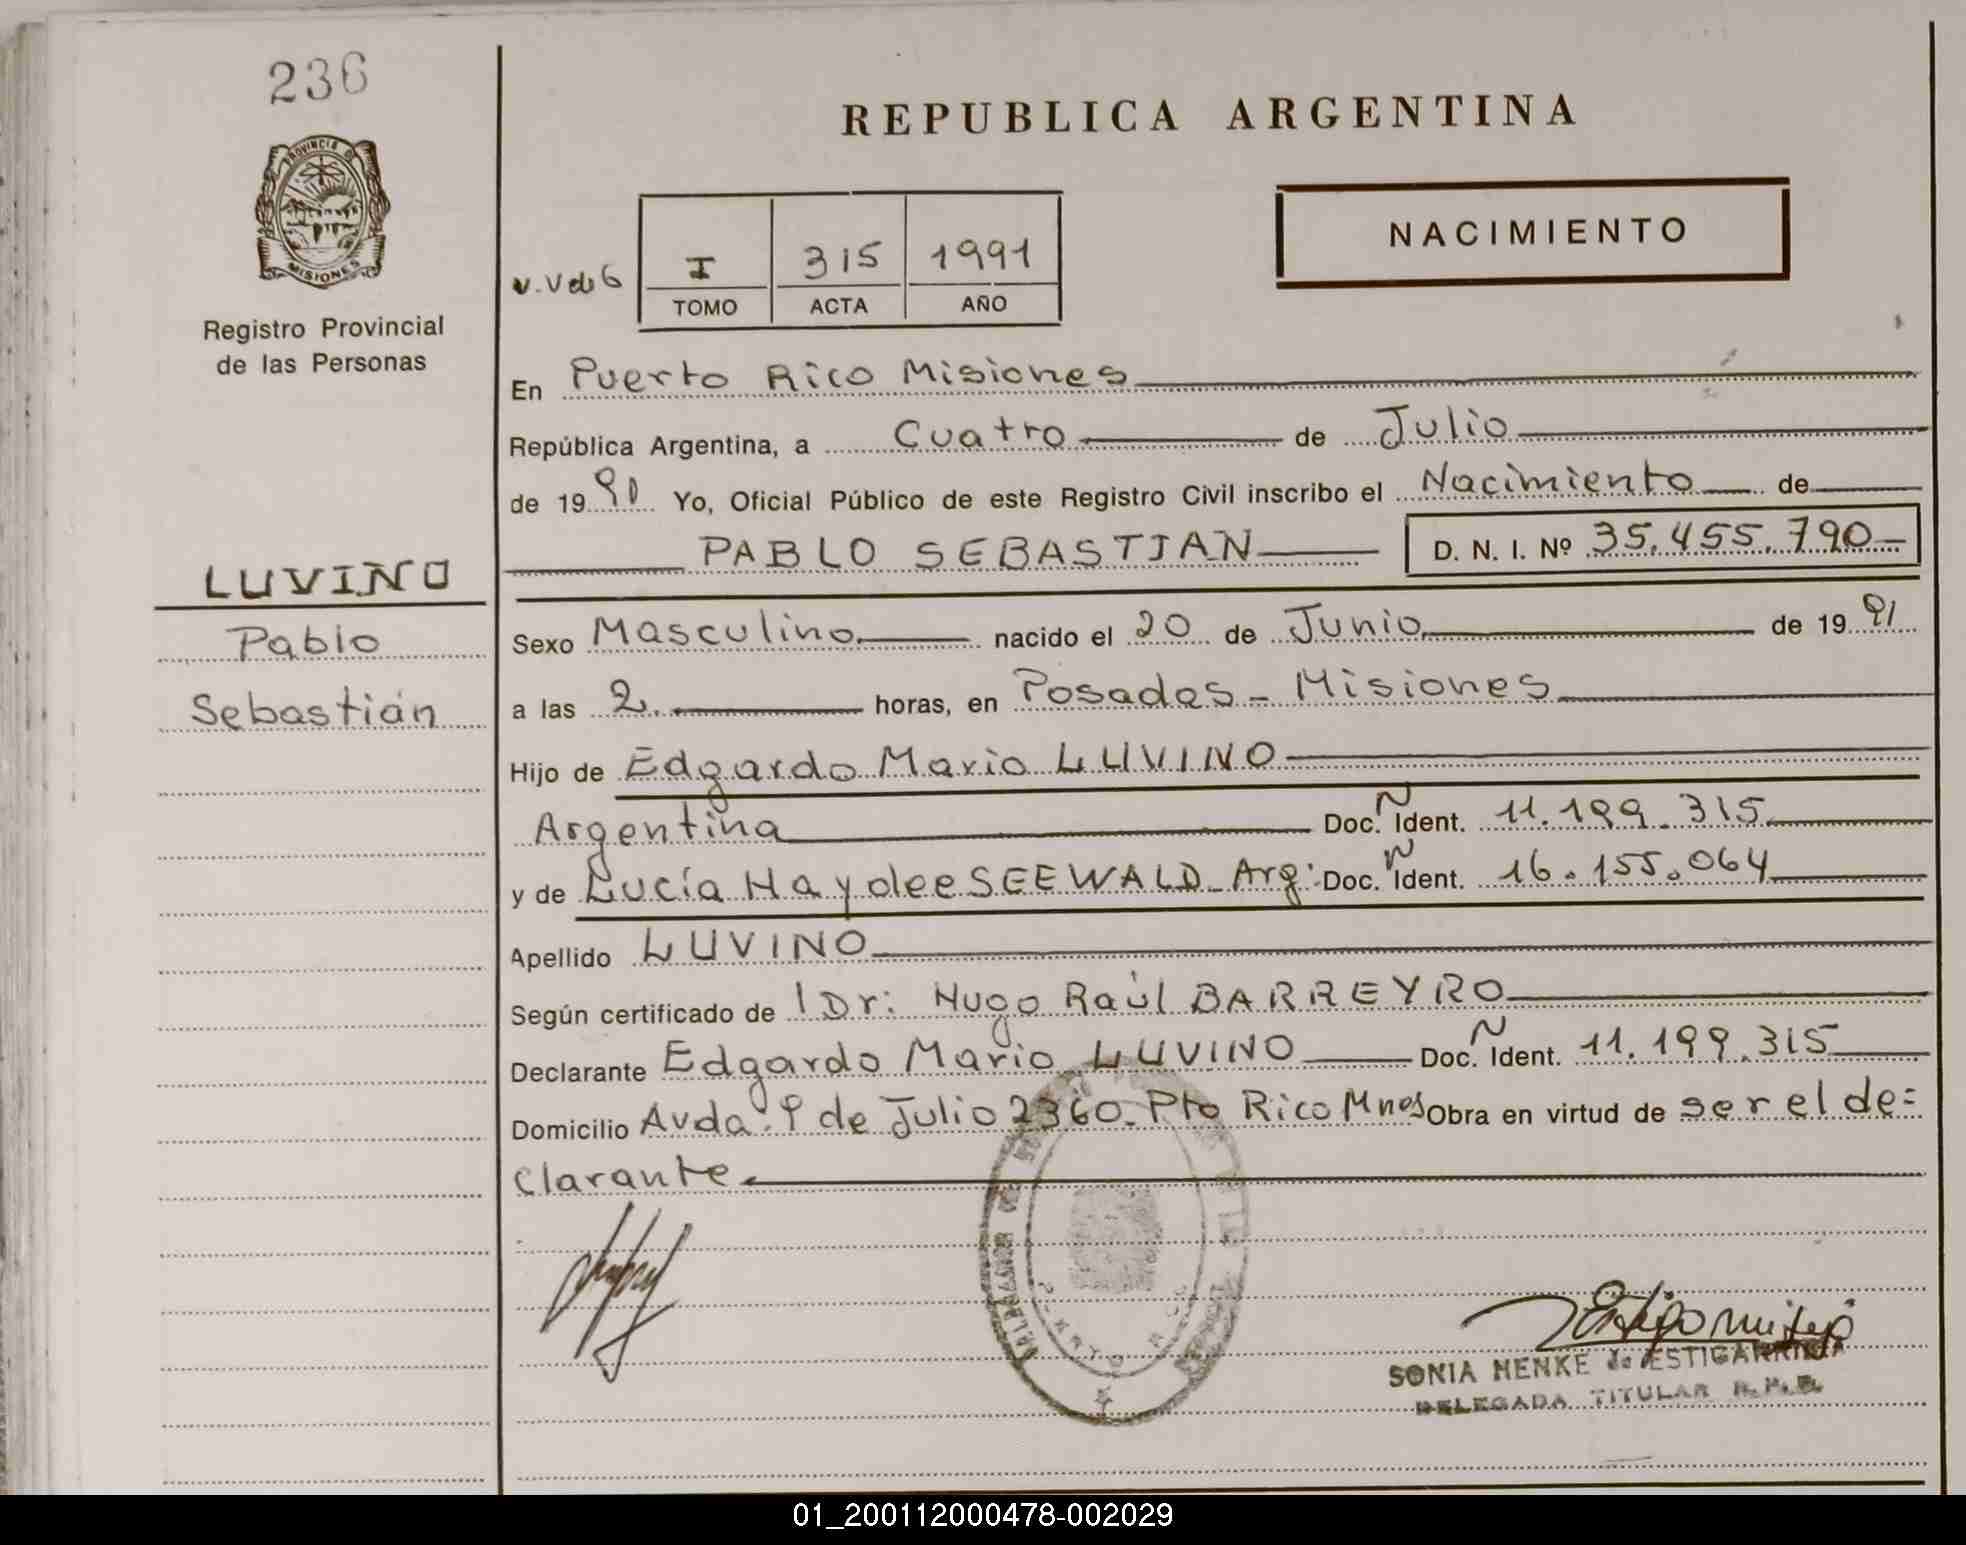 236
PROVINCIA DE
MISIONES
Registro Provincial
de las Personas
REPUBLICA ARGENTINA
NACIMIENTO
I 315 1991
TOMO ACTA AÑO
En Puerto Rico Misiones
República Argentina, a Cuatro de Julio
de 1991 Yo, Oficial Público de este Registro Civil inscribo el Nacimiento de
PABLO SEBASTIAN D. N. I. Nº 35.455.790
LUVINO
Pablo
Sebastián
Sexo Masculino nacido el 20 de Junio de 1991
a las 2. horas, en Posadas - Misiones
Hijo de Edgardo Mario LUVINO
Argentina Doc. Ñ Ident. 11.199.315
y de Lucía Haydee SEEWALD - Arg: Doc. Ñ Ident. 16.155.064
Apellido LUVINO
Según certificado de l Dr: Hugo Raúl BARREYRO
Declarante Edgardo Mario LUVINO Doc. Ñ Ident. 11.199.315
Domicilio Avda. 9 de Julio 2360. Pto Rico Mnes Obra en virtud de ser el de=
clarante
PUERTO RICO
SONIA HENKE de ESTIGARRIBIA
DELEGADA TITULAR R.P.P.
01_200112000478-002029